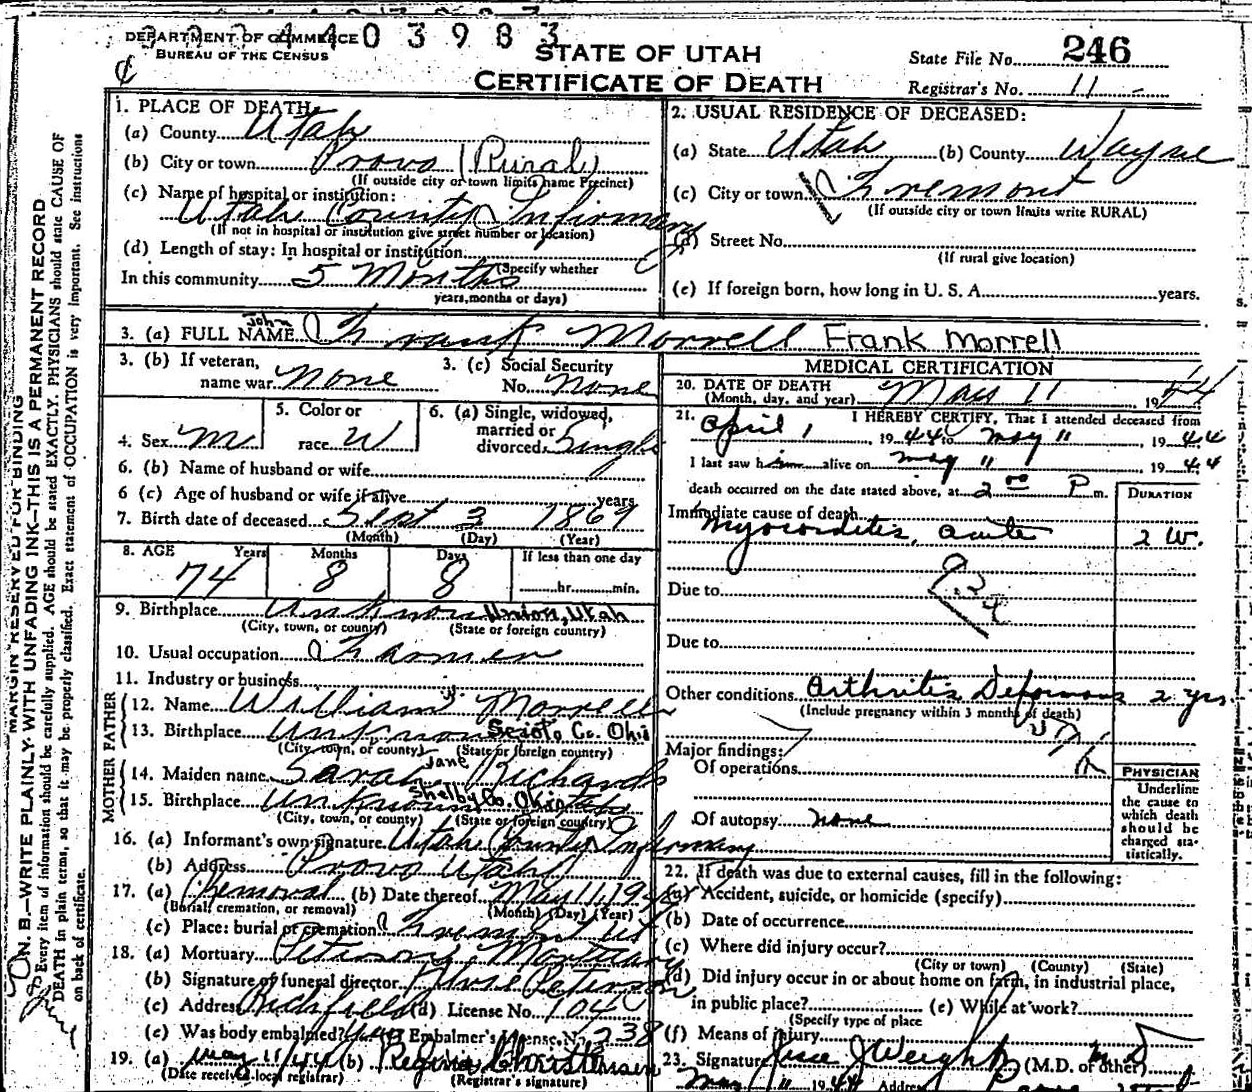 2 3 4 4 0 3 9 8 3
DEPARTMENT OF COMMERCE
BUREAU OF THE CENSUS
STATE OF UTAH
CERTIFICATE OF DEATH
State File No. 246
Registrar's No. 11
MARGIN RESERVED FOR BINDING
N. B.—WRITE PLAINLY WITH UNFADING INK—THIS IS A PERMANENT RECORD
Every item of information should be carefully supplied. AGE should be stated EXACTLY. PHYSICIANS should state CAUSE OF
DEATH in plain terms, so that it may be properly classified. Exact statement of OCCUPATION is very important. See instructions
on back of certificate.
1. PLACE OF DEATH:
(a) County Utah
(b) City or town Provo (Rural)
(If outside city or town limits name Precinct)
(c) Name of hospital or institution:
Utah County Infirmary
(If not in hospital or institution give street number or location)
(d) Length of stay: In hospital or institution
(Specify whether
In this community 5 Months
years, months or days)
2. USUAL RESIDENCE OF DECEASED:
(a) State Utah (b) County Wayne
(c) City or town Fremont
(If outside city or town limits write RURAL)
(d) Street No.
(If rural give location)
(e) If foreign born, how long in U. S. A. years.
3. (a) FULL NAME John Frank Morrell Frank Morrell
3. (b) If veteran, name war None
3. (c) Social Security No. None
4. Sex M
5. Color or race W
6. (a) Single, widowed, married or divorced Single
6. (b) Name of husband or wife
6 (c) Age of husband or wife if alive years
7. Birth date of deceased Sept 3 1869
(Month) (Day) (Year)
8. AGE Years Months Days If less than one day
74 8 8 hr. min.
9. Birthplace Unknown Union, Utah
(City, town, or county) (State or foreign country)
10. Usual occupation Farmer
11. Industry or business
FATHER
12. Name William Morrell
13. Birthplace Unknown Scioto Co. Ohio
(City, town, or county) (State or foreign country)
MOTHER
14. Maiden name Sarah Jane Richards
15. Birthplace Unknown Shelby Co. Ohio
(City, town, or county) (State or foreign country)
16. (a) Informant's own signature Utah County Infirmary
(b) Address Provo Utah
17. (a) Removal (b) Date thereof May 11, 1944
(Burial, cremation, or removal) (Month) (Day) (Year)
(c) Place: burial or cremation Fremont Ut
18. (a) Mortuary Mortuary
(b) Signature of funeral director
(c) Address Richfield (d) License No. 104
(e) Was body embalmed? yes (f) Embalmer's License No. 238
19. (a) May 11/44 (b) Regina Christensen
(Date received local registrar) (Registrar's signature)
MEDICAL CERTIFICATION
20. DATE OF DEATH May 11 1944
(Month, day, and year)
21. I HEREBY CERTIFY, That I attended deceased from
April 1, 1944 to May 11 1944
I last saw him alive on May 11 1944
death occurred on the date stated above, at 2 00 P m.
DURATION
Immediate cause of death
Myocarditis, acute 2 W.
Due to
Due to
Other conditions Arthritis Deformans 2 yrs
(Include pregnancy within 3 months of death)
Major findings:
Of operations
Of autopsy none
PHYSICIAN
Underline
the cause to
which death
should be
charged sta-
tistically.
22. If death was due to external causes, fill in the following:
(a) Accident, suicide, or homicide (specify)
(b) Date of occurrence
(c) Where did injury occur?
(City or town) (County) (State)
(d) Did injury occur in or about home on farm, in industrial place,
in public place? (e) While at work?
(Specify type of place
(f) Means of injury
23. Signature Weight (M.D. or other) MD
May 11 1944 Address